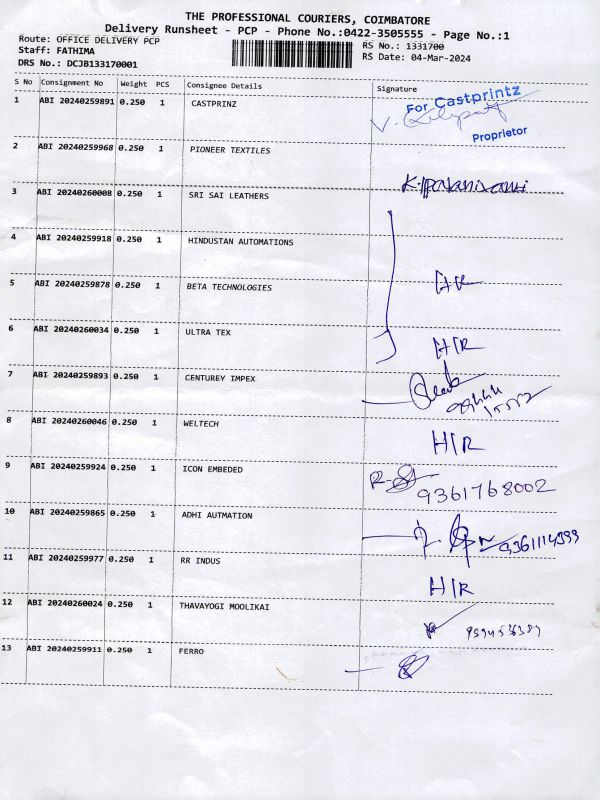 THE PROFESSIONAL COURIERS, COIMBATORE
Delivery Runsheet - PCP - Phone No.:0422-3505555 - Page No.:1
Route: OFFICE DELIVERY PCP RS No.: 1331700
Staff: FATHIMA RS Date: 04-Mar-2024
DRS No.: DCJB133170001
S No Consignment No Weight PCS Consignee Details Signature
1 ABI 20240259891 0.250 1 CASTPRINZ For Castprintz
V.
Proprietor
2 ABI 20240259968 0.250 1 PIONEER TEXTILES
3 ABI 20240260008 0.250 1 SRI SAI LEATHERS
4 ABI 20240259918 0.250 1 HINDUSTAN AUTOMATIONS
5 ABI 20240259878 0.250 1 BETA TECHNOLOGIES
6 ABI 20240260034 0.250 1 ULTRA TEX H/R
7 ABI 20240259893 0.250 1 CENTUREY IMPEX
8 ABI 20240260046 0.250 1 WELTECH H/R
9 ABI 20240259924 0.250 1 ICON EMBEDED 9361768002
10 ABI 20240259865 1 ADHI AUTMATION 9361114399
11 ABI 20240259977 0.250 1 RR INDUS H/R
12 ABI 20240260024 0.250 1 THAVAYOGI MOOLIKAI
13 ABI 20240259911 0.250 1 FERRO